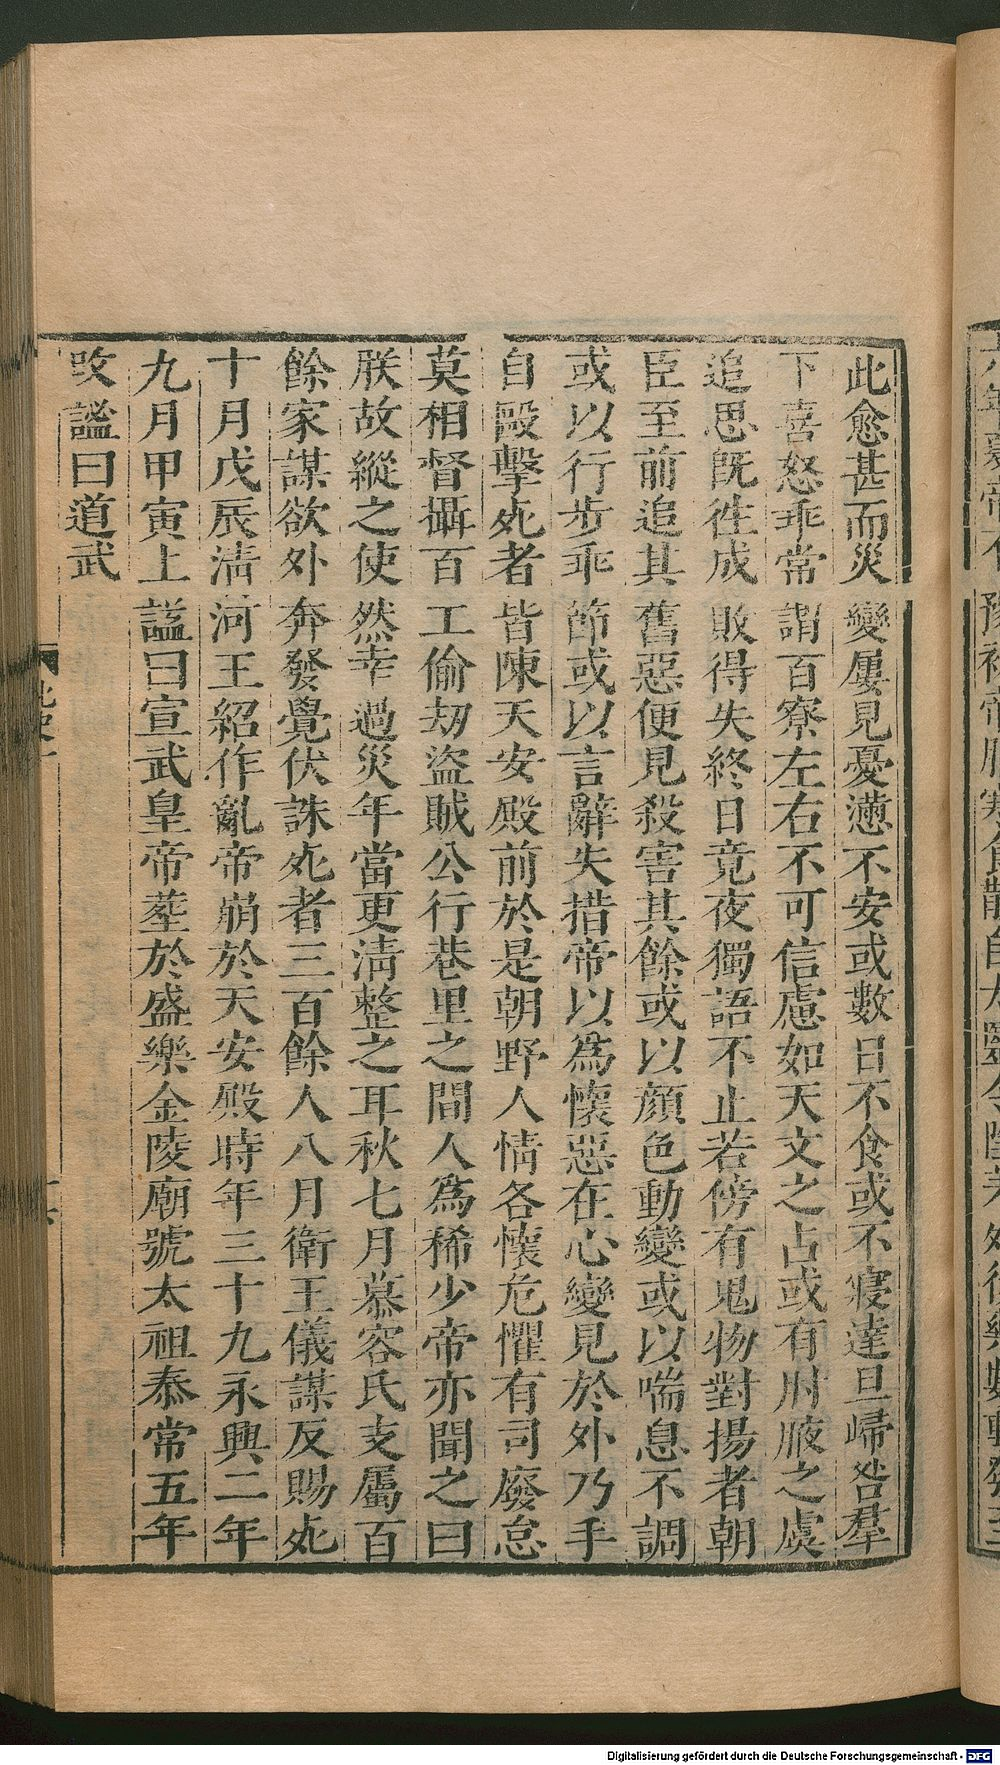 此愈甚而災變屢見憂懣不安或數日不食或不寢達旦歸咎羣
下喜怒乖常謂百寮左右不可信慮如天文之占或有肘腋之虞
追思既徃成敗得失終日竟夜獨語不止若傍有鬼物對揚者朝
臣至前追其舊惡便見殺害其餘或以顏色動變或以喘息不調
或以行步乖節或以言辭失措帝以爲懷惡在心變見於外乃手
自毆擊死者皆陳天安殿前於是朝野人情各懷危懼有司廢怠
莫相督攝百工偷刼盜賊公行巷里之間人爲稀少帝亦聞之曰
朕故縱之使然幸過災年當更清整之耳秋七月慕容氏支屬百
餘家謀欲外奔發覺伏誅死者三百餘人八月衛王儀謀反賜死
十月戊辰清河王紹作亂帝崩於天安殿時年三十九永興二年
九月甲寅上謚曰宣武皇帝葬於盛樂金陵廟號太祖泰常五年
改謚曰道武
北史一
Digitalisierung gefördert durch die Deutsche Forschungsgemeinschaft - DFG